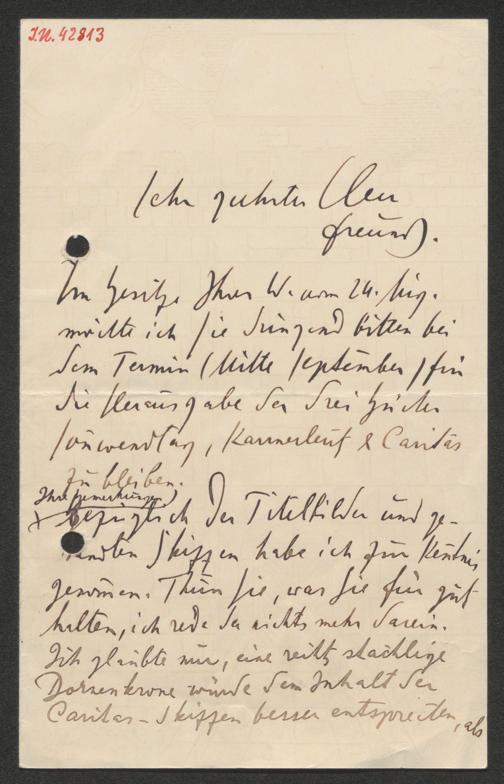 J.N. 42813
Sehr geehrter Herr
Freund.
Im Besitze Ihres W. vom 24. Aug.
möchte ich Sie dringend bitten bei
dem Termin (Mitte September) für
die Herausgabe der drei Bücher
Sonwendtag, Karrnerleut & Caritas
zu bleiben.
Ihre Bemerkungen)
bezüglich der Titelbilder und ge-
sandten Skizzen habe ich zur Kentnis
genomen. Thun Sie, was Sie für gut
halten, ich rede da nichts mehr darein.
Ich glaubte nur, eine stachlige
Dornenkrone würde dem Inhalt der
Caritas-Skizzen besser entsprechen, als